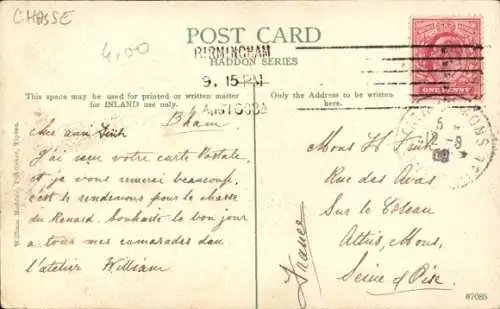 CHASSE
4,00
POST CARD
BIRMINGHAM
HADDON SERIES
9. 15 PM
This space may be used for printed or written matter
for INLAND use only.
Only the Address to be written
here.
ONE PENNY
B'ham
Cher ami
J'ai reçu votre carte Postale
et je vous remerci beaucoup,
c'est le rendezvous pour le chasse
du Renard. Souhaite le bon jour
a tous mes camarades dan
l'atelier William
Mons H.
Rue des
Sur le Coteau
Athis, Mons,
Seine & Oise
France
87085